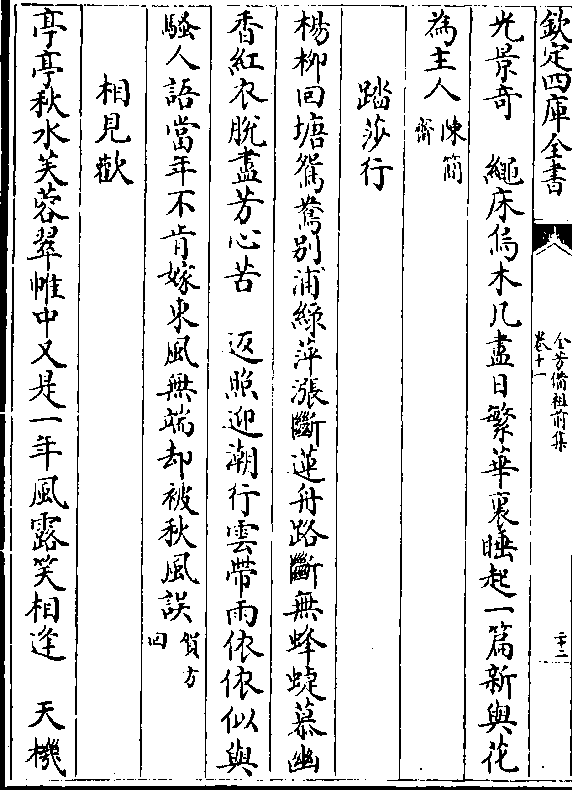 欽定四庫全書
全芳備祖前集
卷十一
二十二
光景奇　繩床烏木几盡日繁華裏睡起一篇新與花
為主人陳簡
齋
踏莎行
楊柳回塘鴛鴦别浦綠萍漲斷蓮舟路斷無蜂蜨慕幽
香紅衣脫盡芳心苦　返照迎潮行雲帶雨依依似與
騷人語當年不肯嫁東風無端却被秋風誤賀方
回
相見歡
亭亭秋水芙蓉翠帷中又是一年風露笑相逢　天機